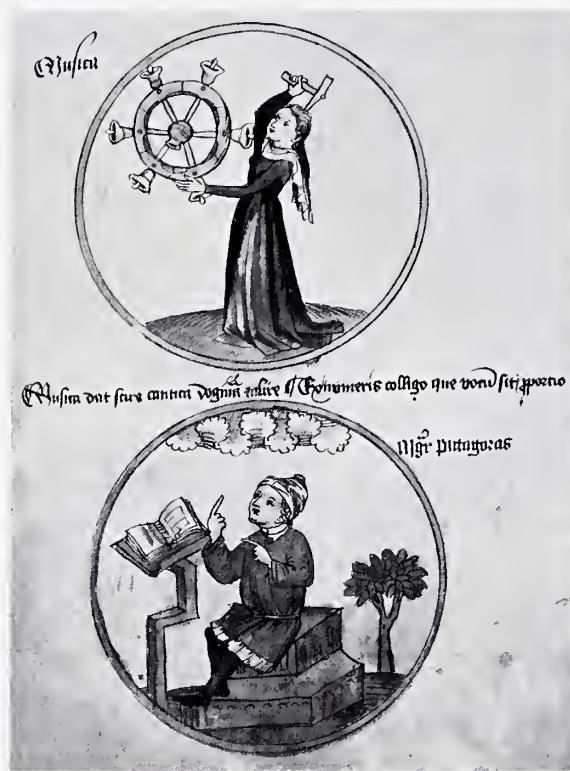 Musica
Musica dat scire cantica dogmata mire Ex numeris colligo que vocum sit proportio
Mgr pittagoras